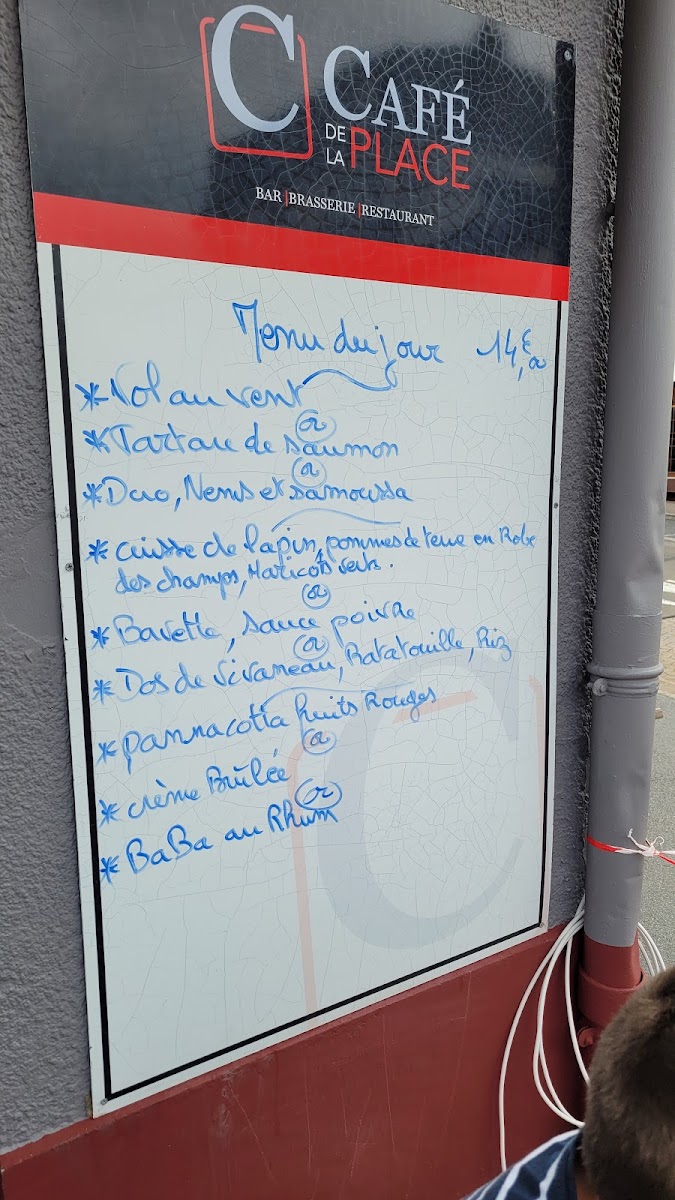 C CAFÉ
DE LA PLACE
BAR | BRASSERIE | RESTAURANT
Menu du jour 14,€00
* Vol au vent
ou
* Tartare de saumon
ou
* Duo, Nems et samoussa
* cuisse de lapin, pommes de terre en Robe
des champs, Haricots verts.
ou
* Bavette, sauce poivre
ou
* Dos de vivaneau, Ratatouille, Riz
* pannacotta fruits Rouges
ou
* crème Brûlée
ou
* BaBa au Rhum
C